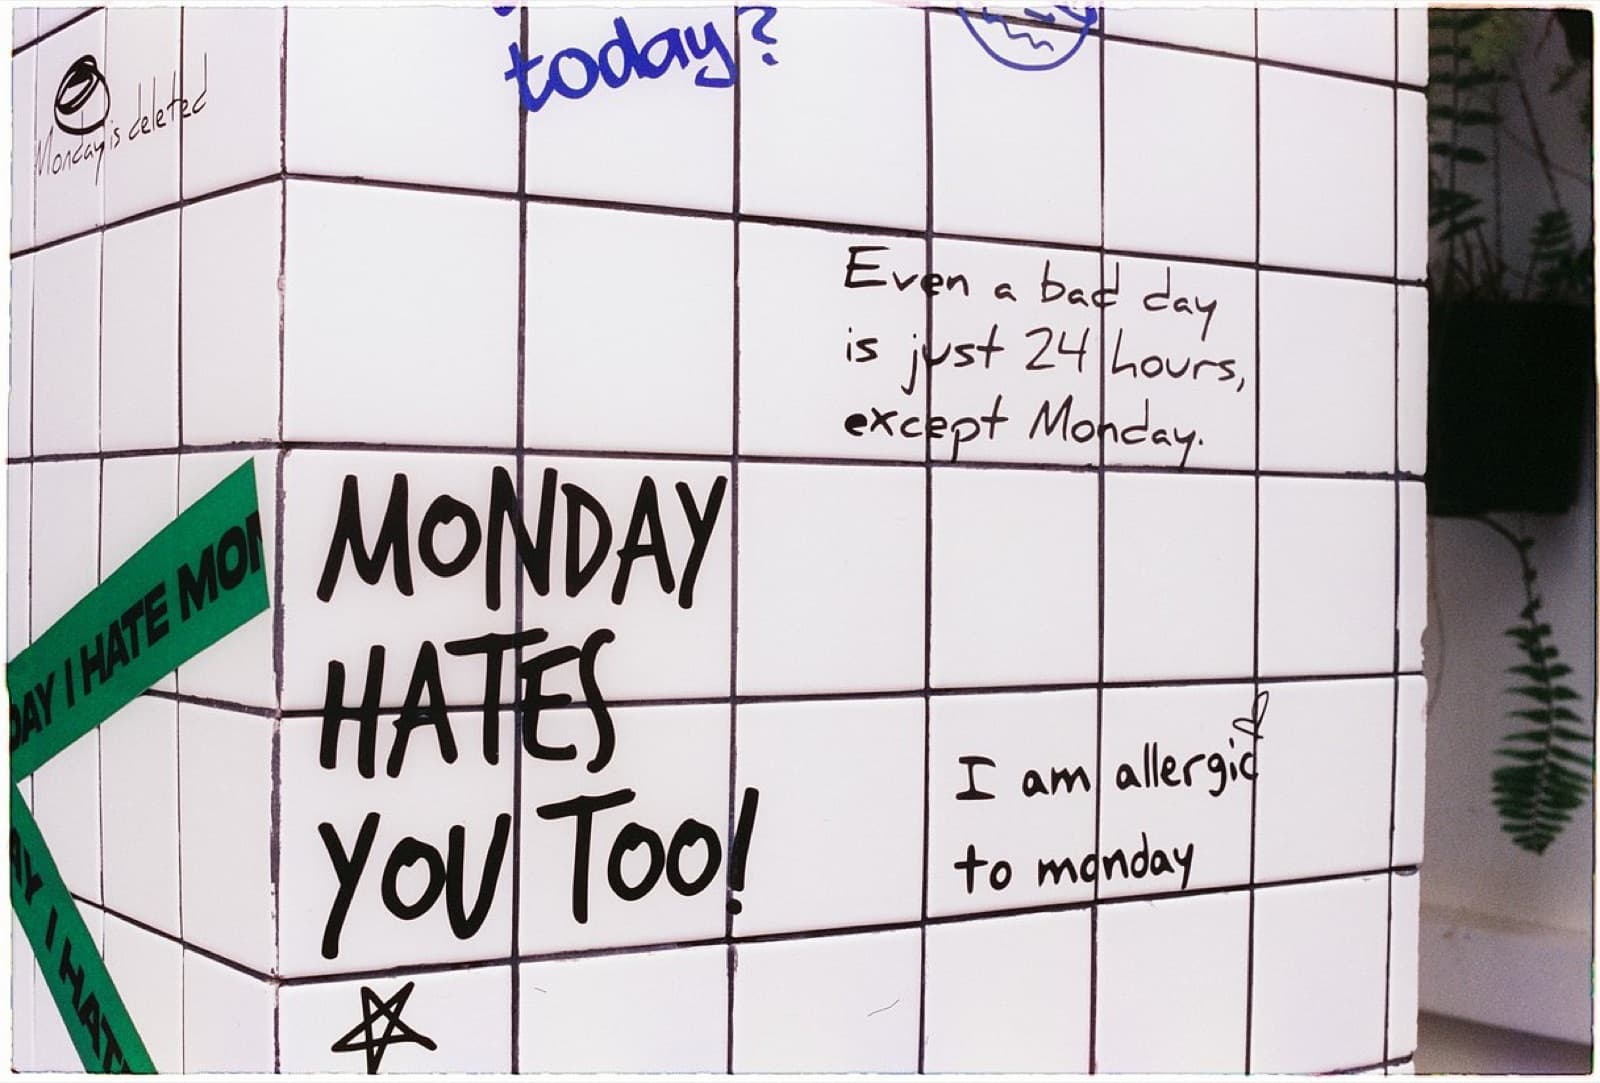 today?
Monday is deleted
Even a bad day
is just 24 hours,
except Monday.
MONDAY
HATES
YOU TOO!
DAY I HATE MON
I am allergic
to monday
AY I HAT